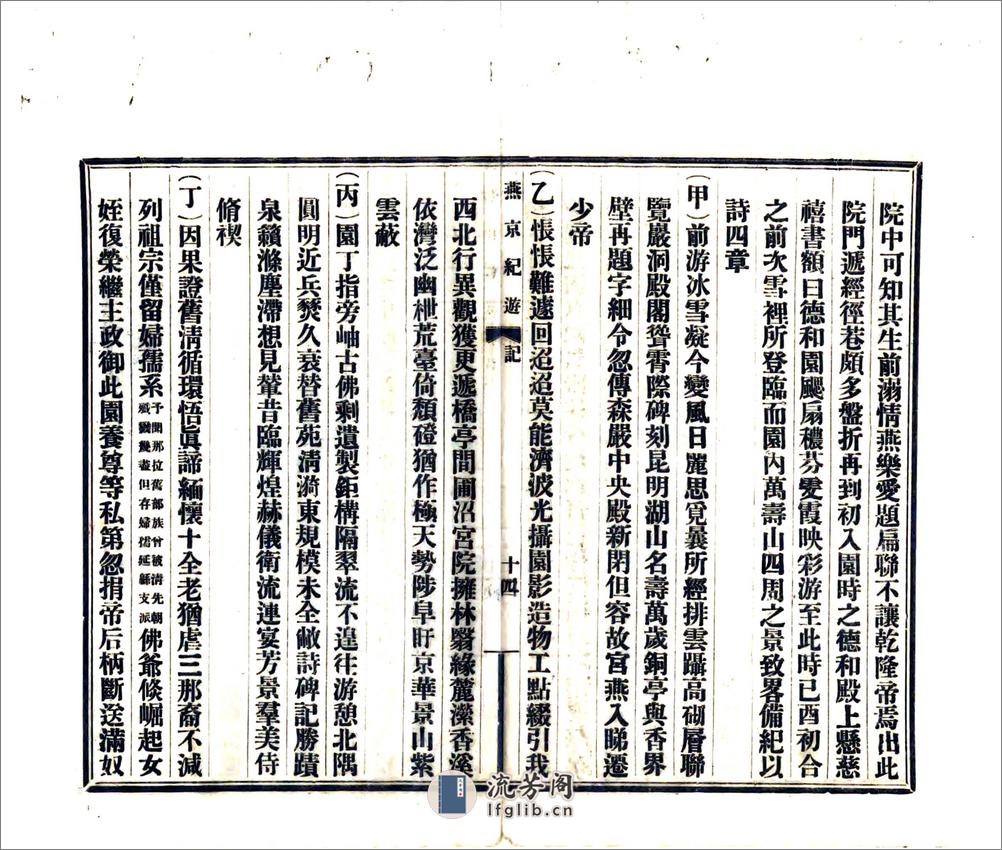 院中可知其生前溺情燕樂愛題扁聯不讓乾隆帝焉出此
院門遞經徑巷頗多盤折再到初入園時之德和殿上懸慈
禧書額曰德和園颺扇穠芬雯霞映彩游至此時已酉初合
之前次雪裡所登臨而園內萬壽山四周之景致畧備紀以
詩四章
(甲)前游冰雪凝今變風日麗思覓曩所經排雲躡高砌層聯
覽巖洞殿閣聳霄際碑刻昆明湖山名壽萬歲銅亭與香界
壁再題字細令忽傳森嚴中央殿新閉但容故宮燕入睇遷
少帝
燕京紀遊
記
十四
(乙)悵悵難遽回迢迢莫能濟波光攝園影造物工點綴引我
西北行異觀獲更遞橋亭間圃沼宮院擁林翳緣麓瀠香溪
依灣泛幽枻荒臺倚頹磴猶作極天勢陟阜盱京華景山紫
雲蔽
(丙)園丁指旁岫古佛剩遺製鉅構隔翠流不遑往游憩北隅
圓明近兵燹久衰替舊苑清漪東規模未全敝詩碑記勝蹟
泉籟滌塵滯想見輦昔臨輝煌赫儀衛流連宴芳景羣美侍
脩禊
(丁)因果證舊淸循環悟眞諦緬懷十全老猶虐三那裔不減
列祖宗僅留婦孺系予聞那拉舊部族曾被清先朝殲戮幾盡但存婦孺延緜支派佛爺倏崛起女
姪復榮繼主政御此園養尊等私第忽捐帝后柄斷送滿奴
流芳阁
lfglib.cn